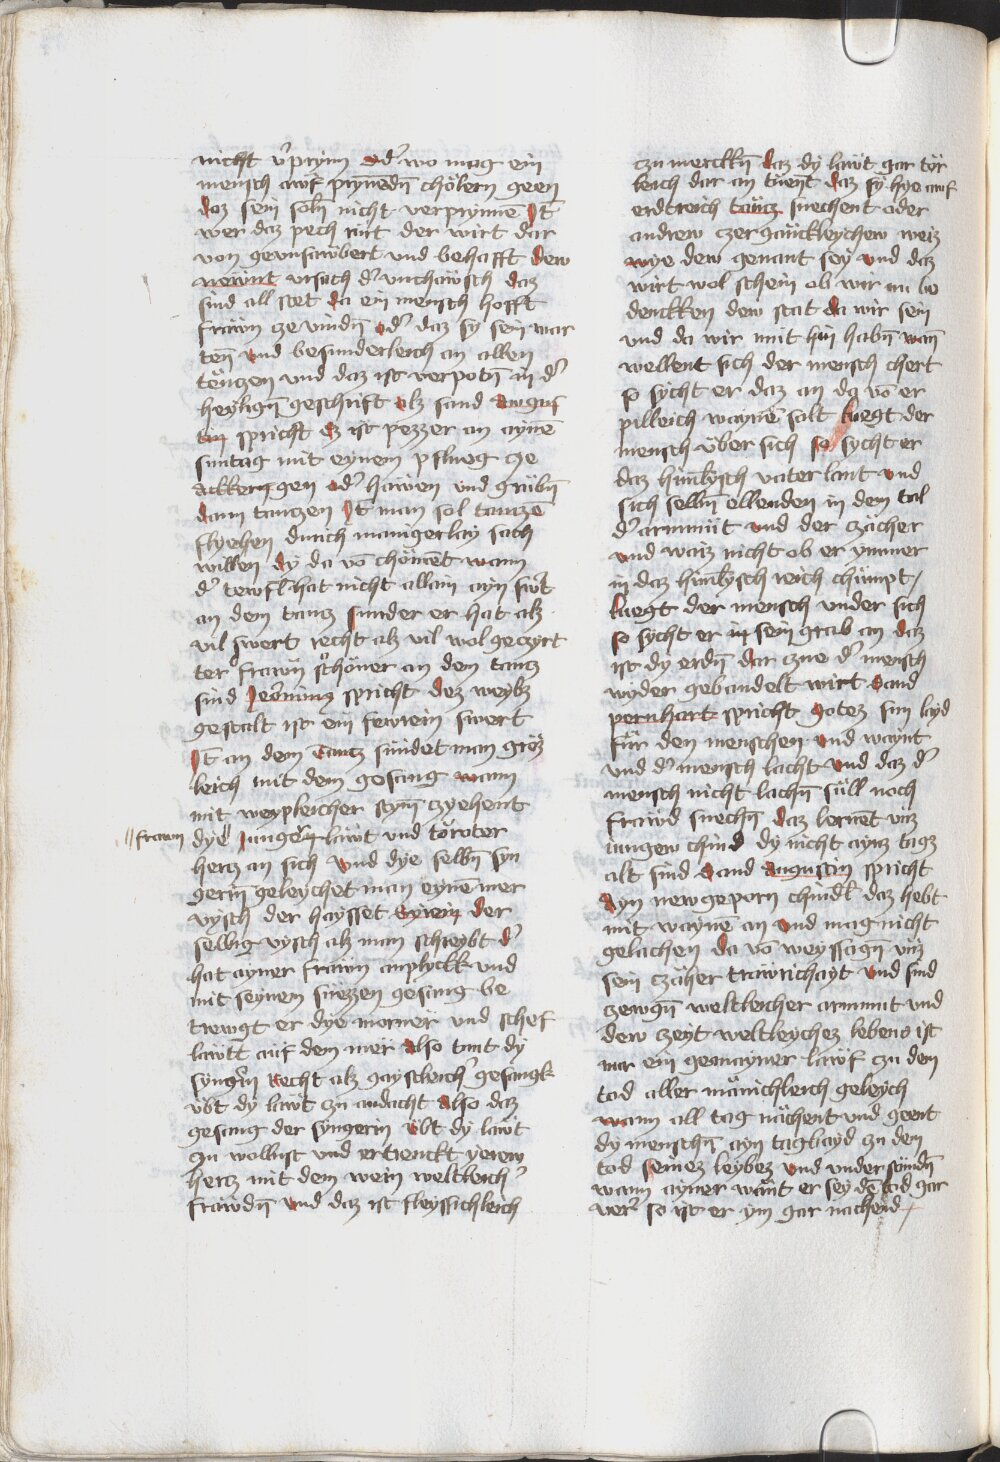 nicht v̓prinn od̓ wo mag ein
mensch awf prynnēdn̄ chölern geen
daz sein soln̄ nicht verprynnē Jt̄
wer daz pech rürt der wirt dar
von gevnsäwbert vnd behafft dew
newnt vrsach d̓ vnchäwsch daz
sind all stet da ein mensch hofft
frawn ze vindn̄ od̓ daz sy sein war
ten̄ vnd besunderleich an allen
tëntzen vnd daz ist verpotn̄ in d̓
heylign̄ geschrift alz sand Awgus
tin spricht Ez ist pezzer an aynē
suntag mit eynem pflueg ze
akkern gen od̓ hawen vnd grabn̄
dann tanczen Jt̄ man sol tanczē
flyehen durich manigerlay sach
willen dy da vō chömēt wann
d̓ tewfl hat nicht allain ayn swt̄
an dem tancz sunder er hat alz
vil swert recht alz vil wolgeczyrt
ter frawn schöner an dem tancz
sind Jeronimg spricht dez weybz
gestalt ist ein fewrein swert
Jt̄ an dem tantz sündet man gröz
leich mit dem gesang wann
mit weypleicher stym̄ czyehent
dye Junger lawt vnd töroter
// frawn
hercz an sich vnd dye selbn̄ syn
gerin̄ geleychet man eynē mer
vysch der haysset Syrein der
selbig vysch alz man schreybt d̓
hat ayner frawn anplyckk vnd
mit seynem suezzen gesang be
trewgt er dye marner vnd schef
läwtt auf dem mer Also tuet dy
syngn̄n Recht alz gaystleich̓ gesangk
übt dy lawt zu andacht Also daz
gesang der syngerin übt dy läwt
zu wollust vnd ertrenckt yerew
hercz mit dem wein weltleich̓
frawdn̄ vnd daz ist fleyssichleich
czu merckkn̄ daz dy läwt gar tör
leich dar an tüent daz sy hye auf
erdtreich täntz suechent oder
andrew czergänckleychew weiz
wye dew genant sey vnd daz
wirt wol schein ob wir an be
denckken dew stat da wir sein
vnd da wir mit hin habn̄ wan̄
wellent sich der mensch chert
so sycht er daz an da vō er
pilleich waynē solt luegt der
mensch über sich so sycht er
daz himlysch vater lant vnd
sich selbn̄ ellenden in dem tal
d̓ armmüt vnd der czächer
vnd waiz nicht ob er ymmer
in daz himlysch reich chümpt /
luegt der mensch vnder sich
so sycht er in sein grab an daz
ist dy erdn̄ dar czue d̓ mensch
wyder gebandelt wirt Sand
pernhart spricht Gotez sun layd
für den menschen vnd waynt
vnd d̓ mensch lacht vnd daz d̓
mensch nicht lachn̄ süll noch
frawd suechn̄ daz lernēt vnz
iungew chind dy nicht aynz tagz
alt sind Sand Augustin spricht
Ayn newgeporn chindl̄ daz hebt
mit waynē an vnd mag nicht
gelachen da vō weyssagn̄ vnz
sein czäher trawrichayt vnd sind
czewgn̄ weltleicher armmut vnd
dew czeyt weltleychez lebens ist
nur ein gemayner läwf czu dem
tod aller mänichleich geleych
wann all tag nächent vnd geent
dy menschn̄ ayn tagbayd zu dem
tod seinez leybez vnd vnder stündn̄
wann ayner wänt er sey dē tod gar
verr so ist er ym gar nachend /